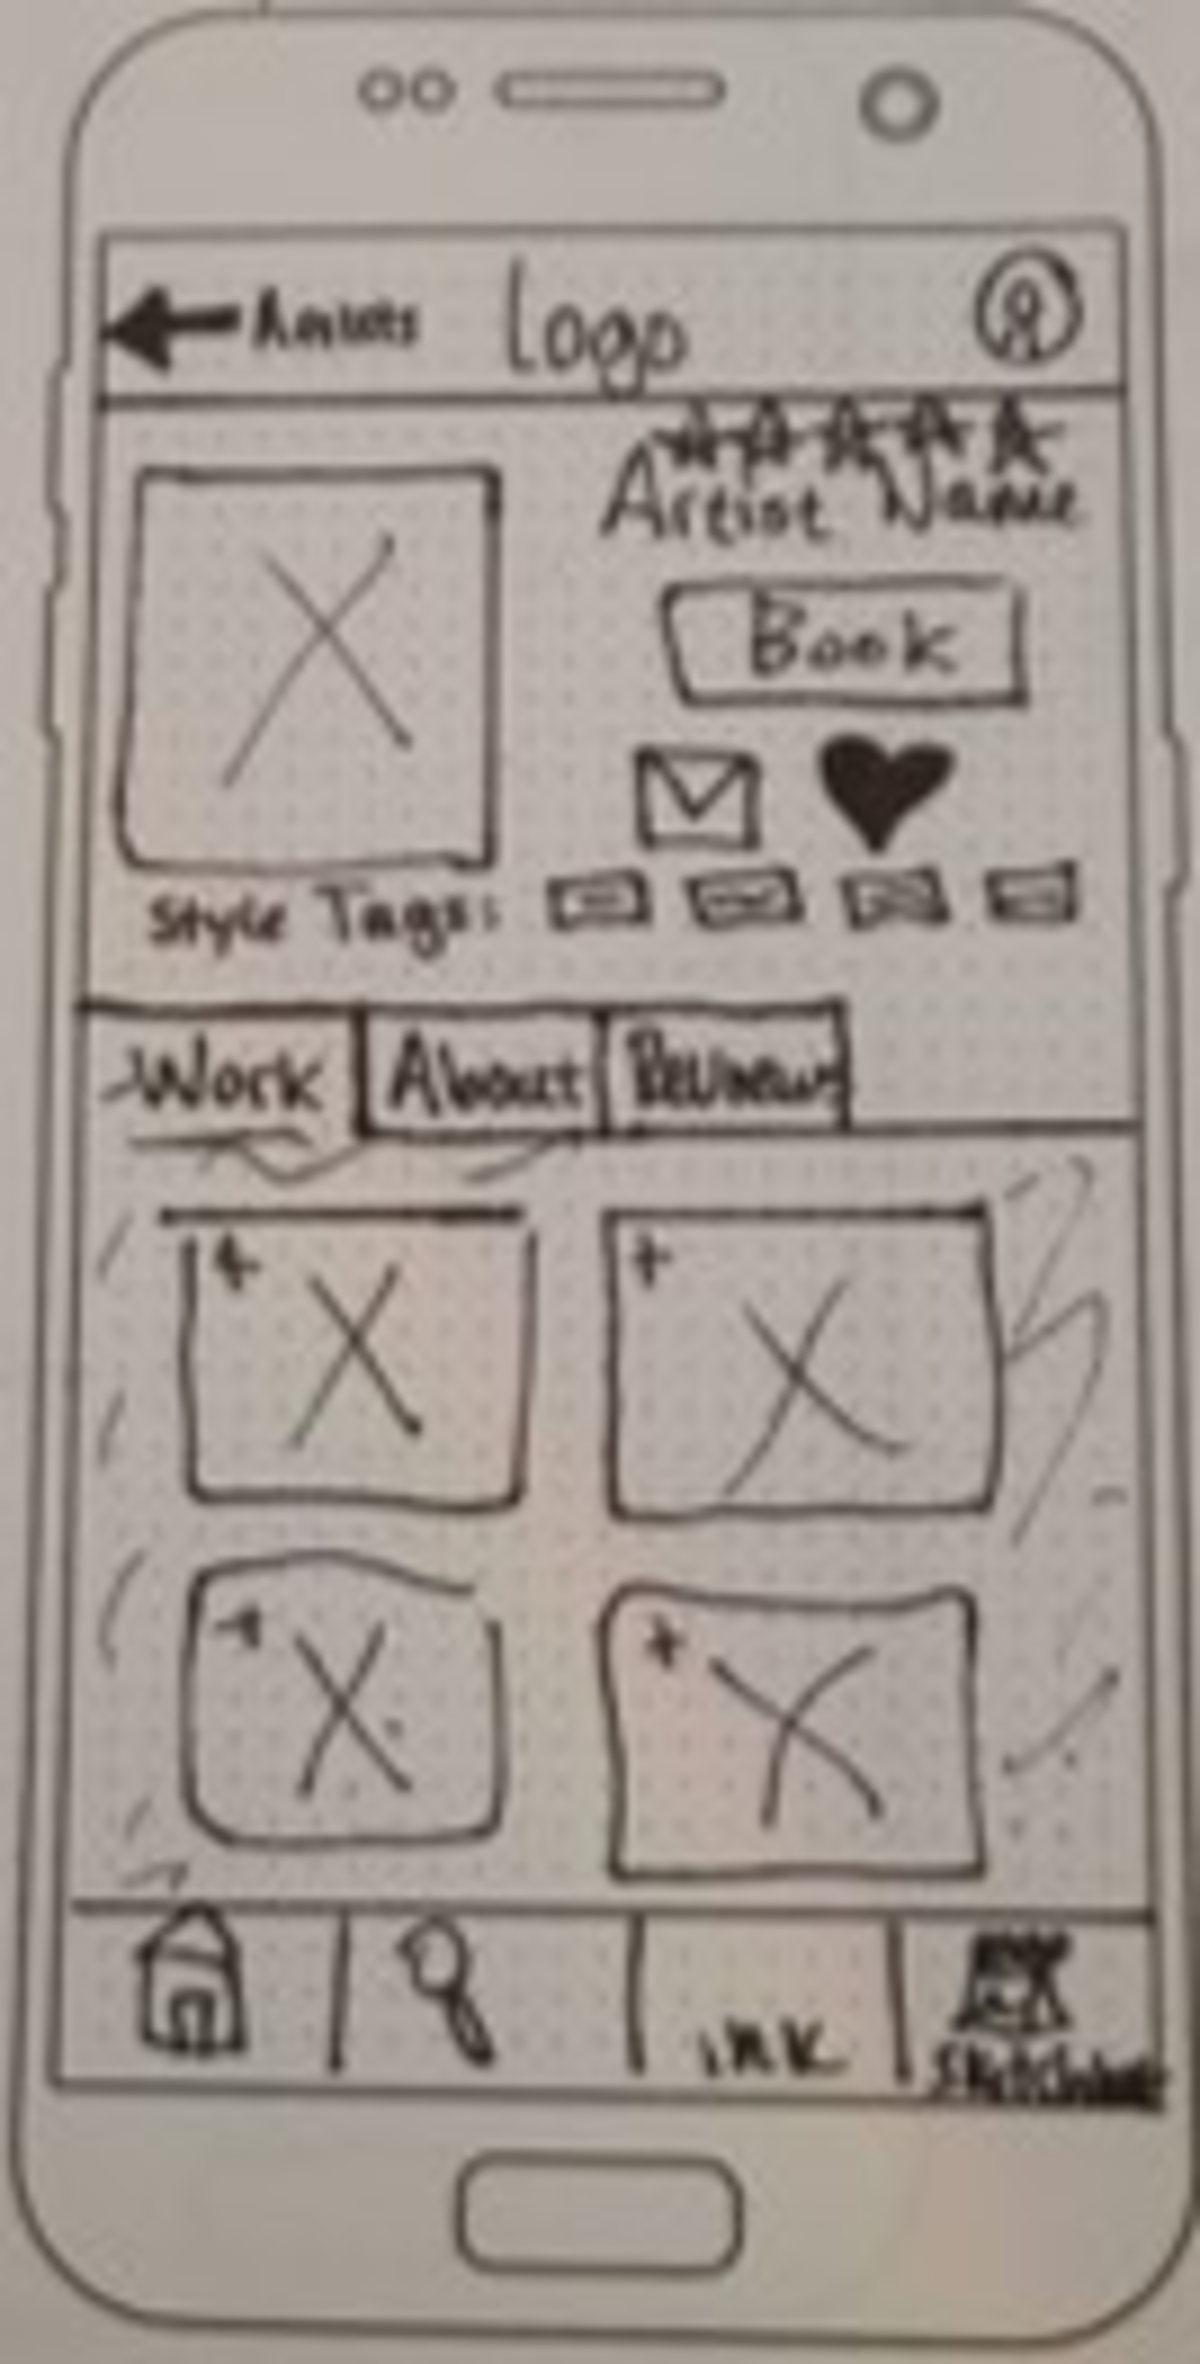 Artists Logo
Artist Name
Book
Style Tags:
Work About Reviews
ink